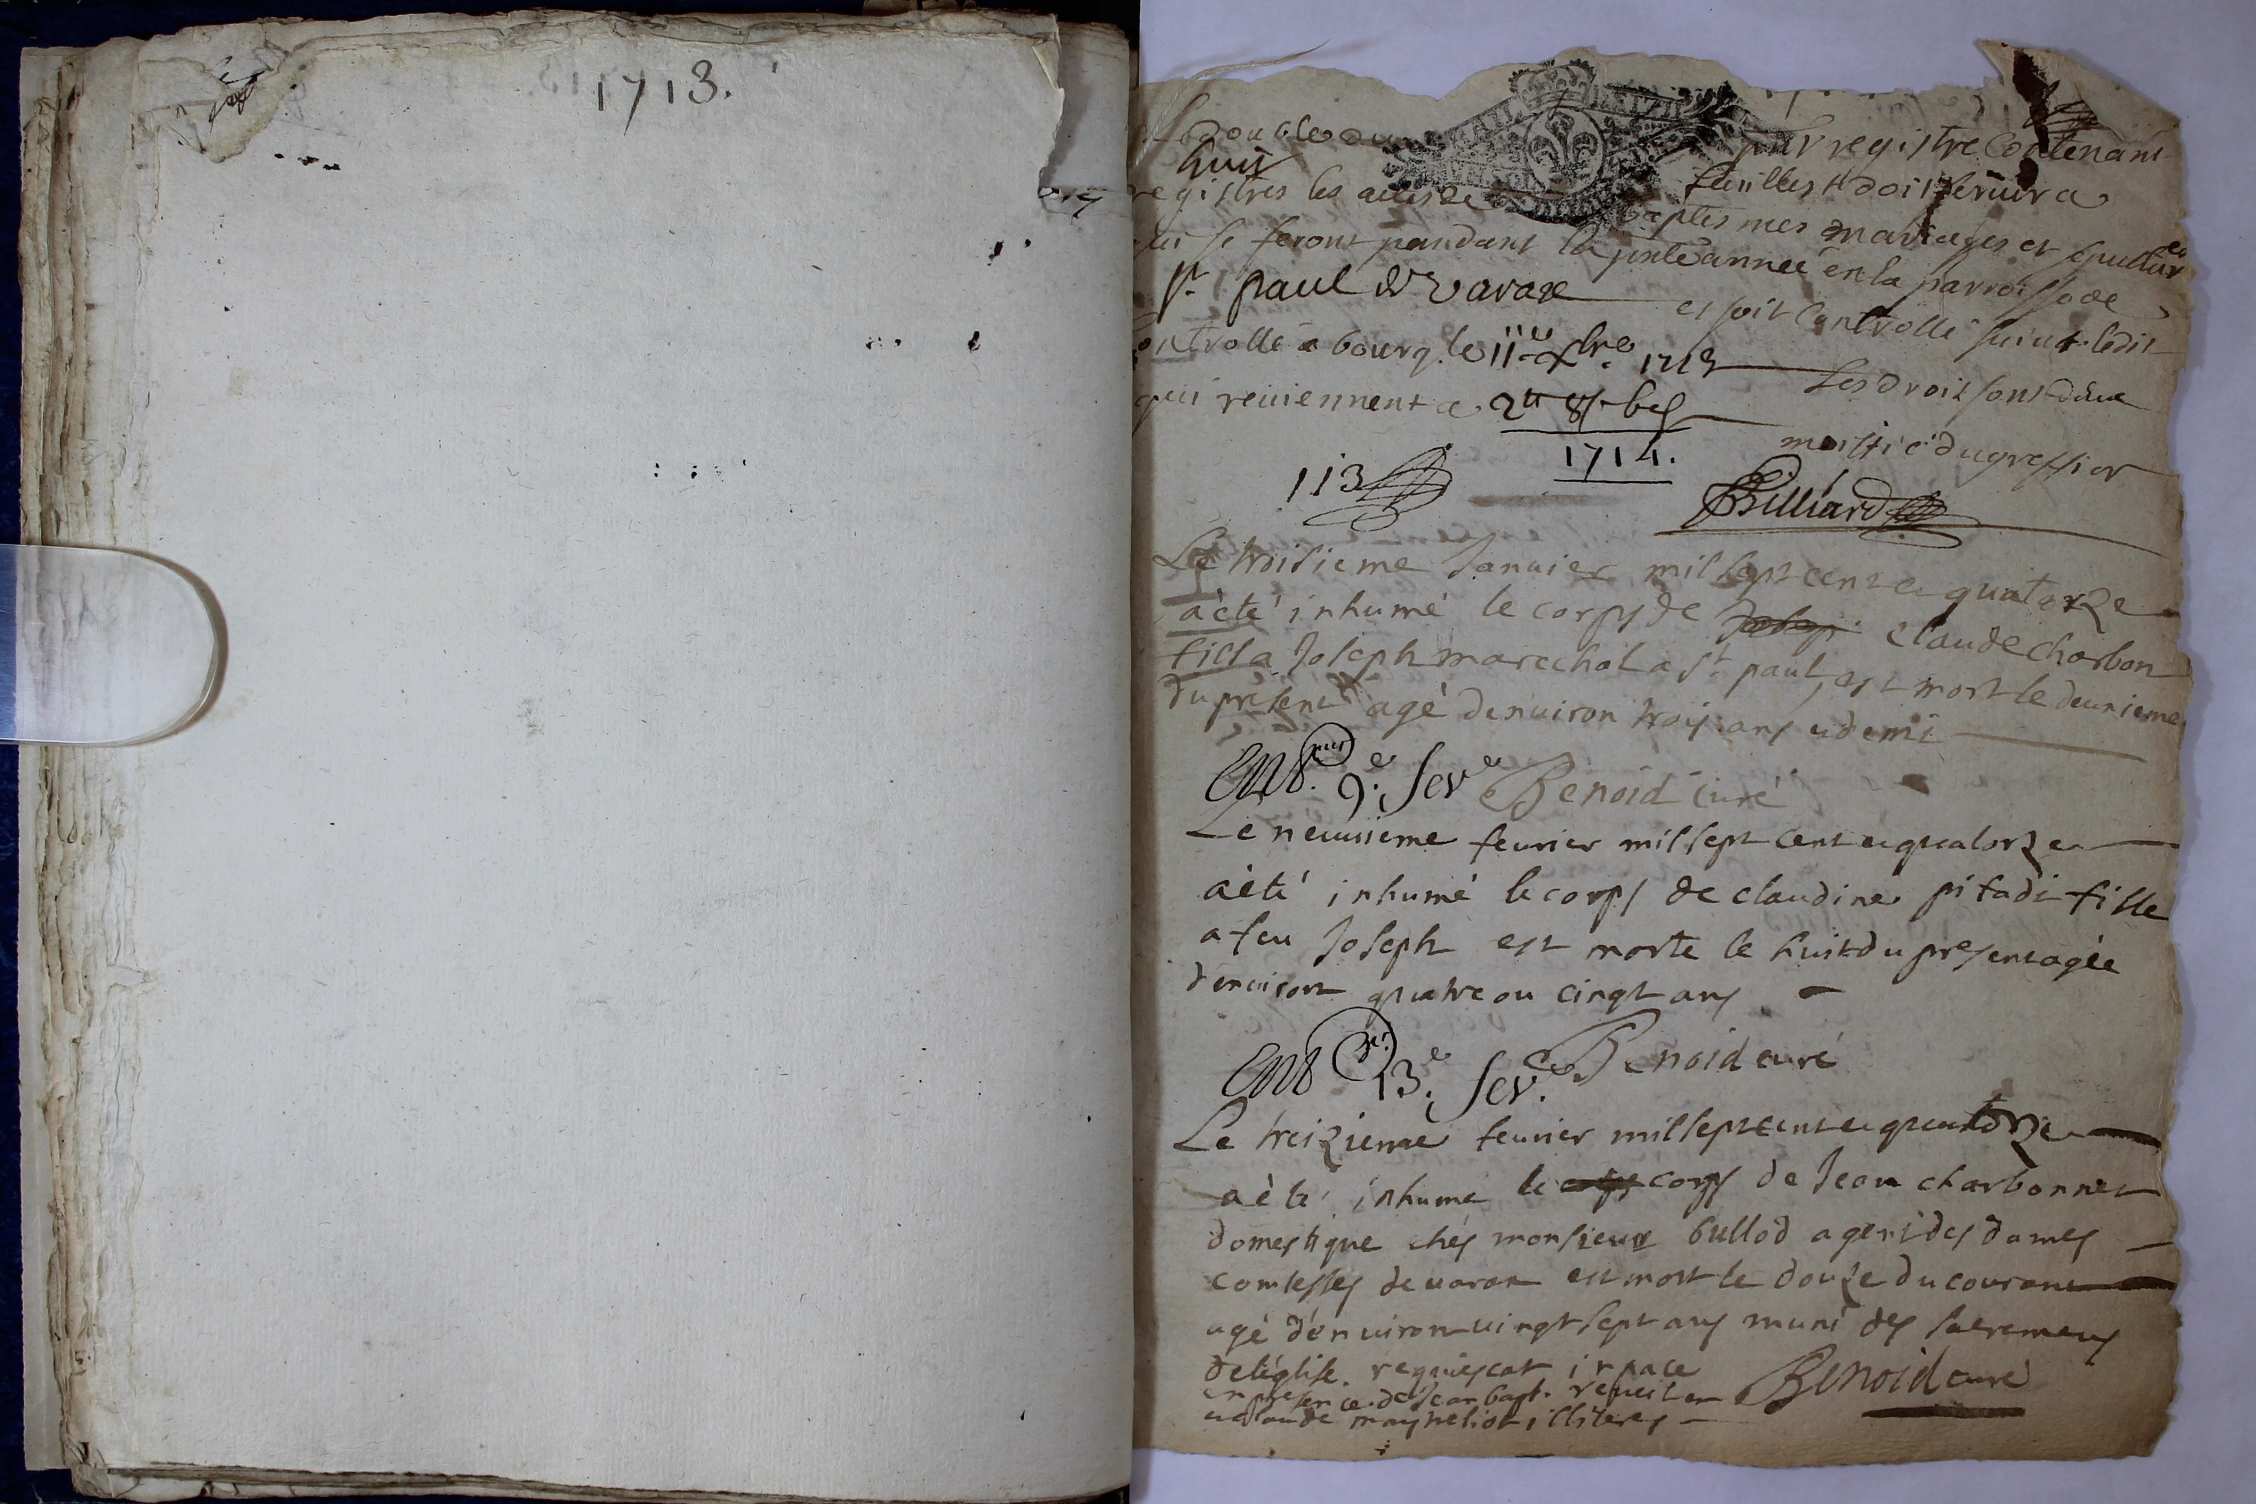 1713.
par registre Contenant
huit feuillets doit servir a
registres les actes de baptes mes mariages et sepultures
qui se feront pandant la pnte année en la parroisse de
st. paul de varax et soit Controlle suiut. ledit
ontrollé a bourg le 11e xbre 1713 Les droit sont deue
qui reuiennent a 2tt 8s 6d
moittié du greffier
1714.
113
Billiard
Le troisieme Januier mil sept cent et quatorze
a été inhumé le corps de claude charbon
fils a Joseph marechal a st paul, est mort le deunieme
du present agé denuiron trois ans et demi
9e. fevr Benoid curé
Le neuuieme feurier mil sept cent et quatorze
a été inhumé le corps de claudine pitadi fille
a feu Joseph est morte le huit du present agée
denuiron quatre ou cinqt ans
13e. fev. Benoid curé
Le treizieme feurier mil sept cent et quatorze
a été inhumé le corps de Jean charbonnet
domestique chés monsieur bullod agent des dames
comtesses de uarax est mort le douze du courant
agé d'enuiron uingt sept ans muni des sacremens
de l'église. requiescat in pace
en presence de Jean bapt. Benoid curé
et claude illiteres